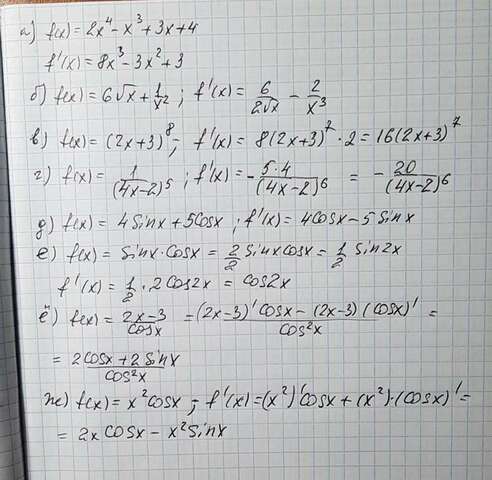 а) f(x) = 2x⁴ - x³ + 3x + 4
f'(x) = 8x³ - 3x² + 3
б) f(x) = 6√x + 1/x² ; f'(x) = 6/(2√x) - 2/x³
в) f(x) = (2x+3)⁸ ; f'(x) = 8(2x+3)⁷ · 2 = 16(2x+3)⁷
г) f(x) = 1/(4x-2)⁵ ; f'(x) = - 5·4/(4x-2)⁶ = - 20/(4x-2)⁶
д) f(x) = 4sinx + 5cosx ; f'(x) = 4cosx - 5sinx
е) f(x) = sinx · cosx = 2/2 sinxcosx = 1/2 sin2x
f'(x) = 1/2 · 2cos2x = cos2x
ё) f(x) = (2x-3)/cosx = ((2x-3)'cosx - (2x-3)(cosx)')/cos²x =
= (2cosx + 2sinx)/cos²x
ж) f(x) = x²cosx ; f'(x) = (x²)'cosx + (x²)·(cosx)' =
= 2xcosx - x²sinx